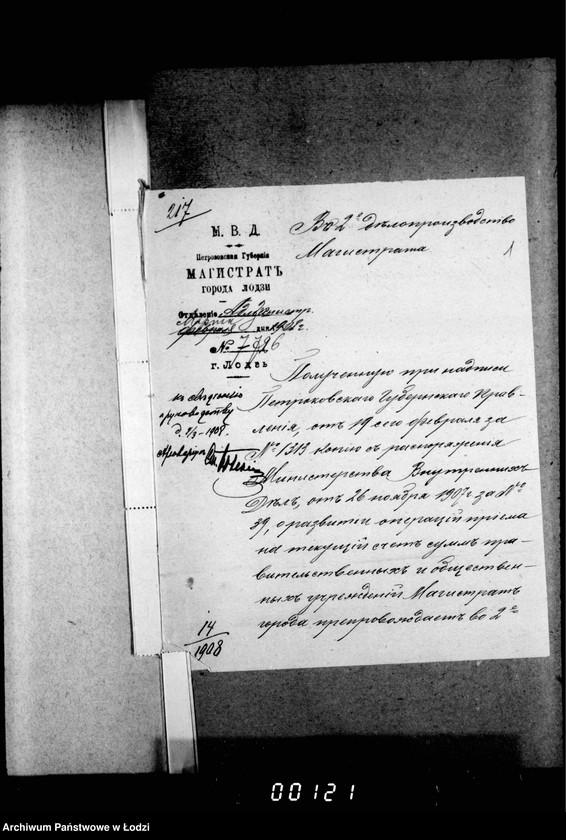 217
М. В. Д.
Петроковская Губернія
МАГИСТРАТЪ
ГОРОДА ЛОДЗИ
Отдѣленіе Администр.
Марта
февраля дня 1908 г.
№ 7726
г. Лодзь
къ свѣдѣнію
и руководству
д. 2/3 – 1908.
14
1908
Въ 2е дѣлопроизводство
Магистрата
1
Полученную при надписи
Петроковскаго Губернскаго Прав-
ленія, отъ 19 сего февраля за
№ 1313 копію съ распоряженія
Министерства Внутреннихъ
Дѣлъ, отъ 26 ноября 1907 г. за №
39, о развитіи операцій пріема
на текущій счетъ суммъ пра-
вительственныхъ и обществен-
ныхъ учрежденій Магистратъ
города препровождаетъ во 2е
00121
Archiwum Państwowe w Łodzi